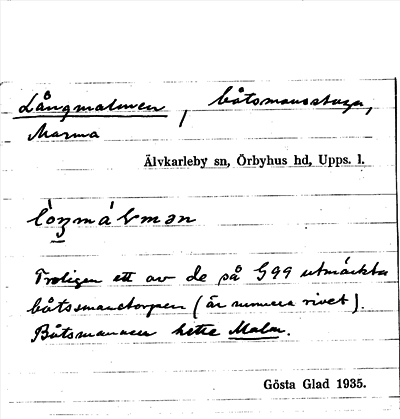 Långmalmen, båtsmansstuga,
Marma
Älvkarleby sn, Örbyhus hd, Upps. l.
Troligen ett av de på G99 utmärkta
båtsmanstorpen (är numera rivet).
Båtsmannen hette Malm.
Gösta Glad 1935.